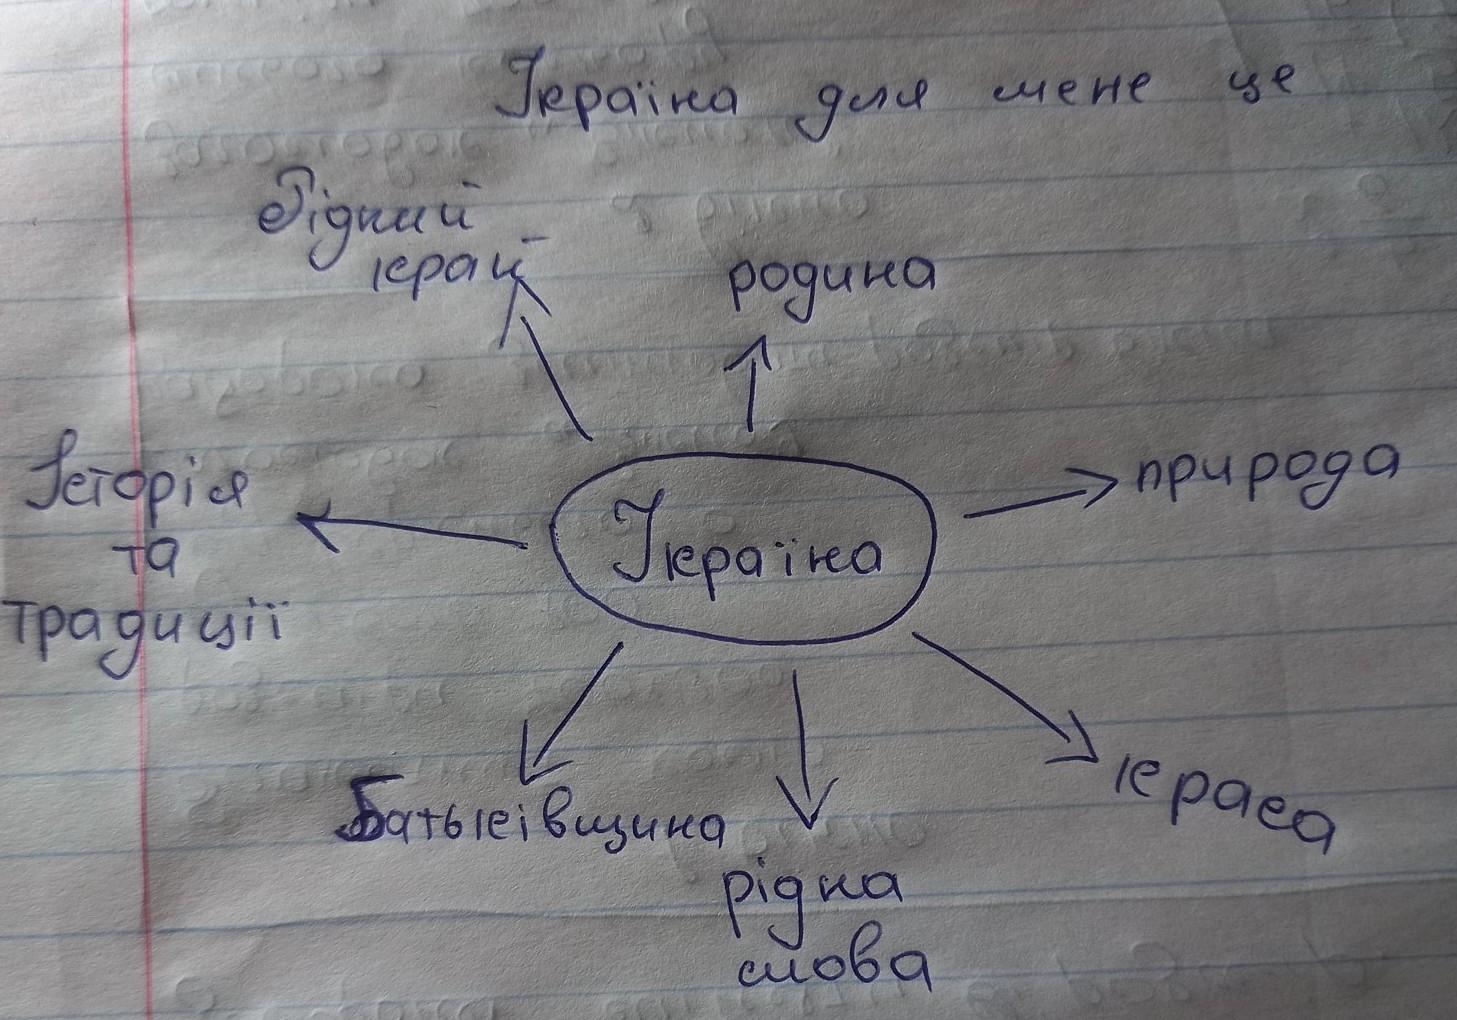 Україна для мене це
Рідний
край
родина
природа
Історія
та
традиції
Україна
Батьківщина
краса
рідна
мова